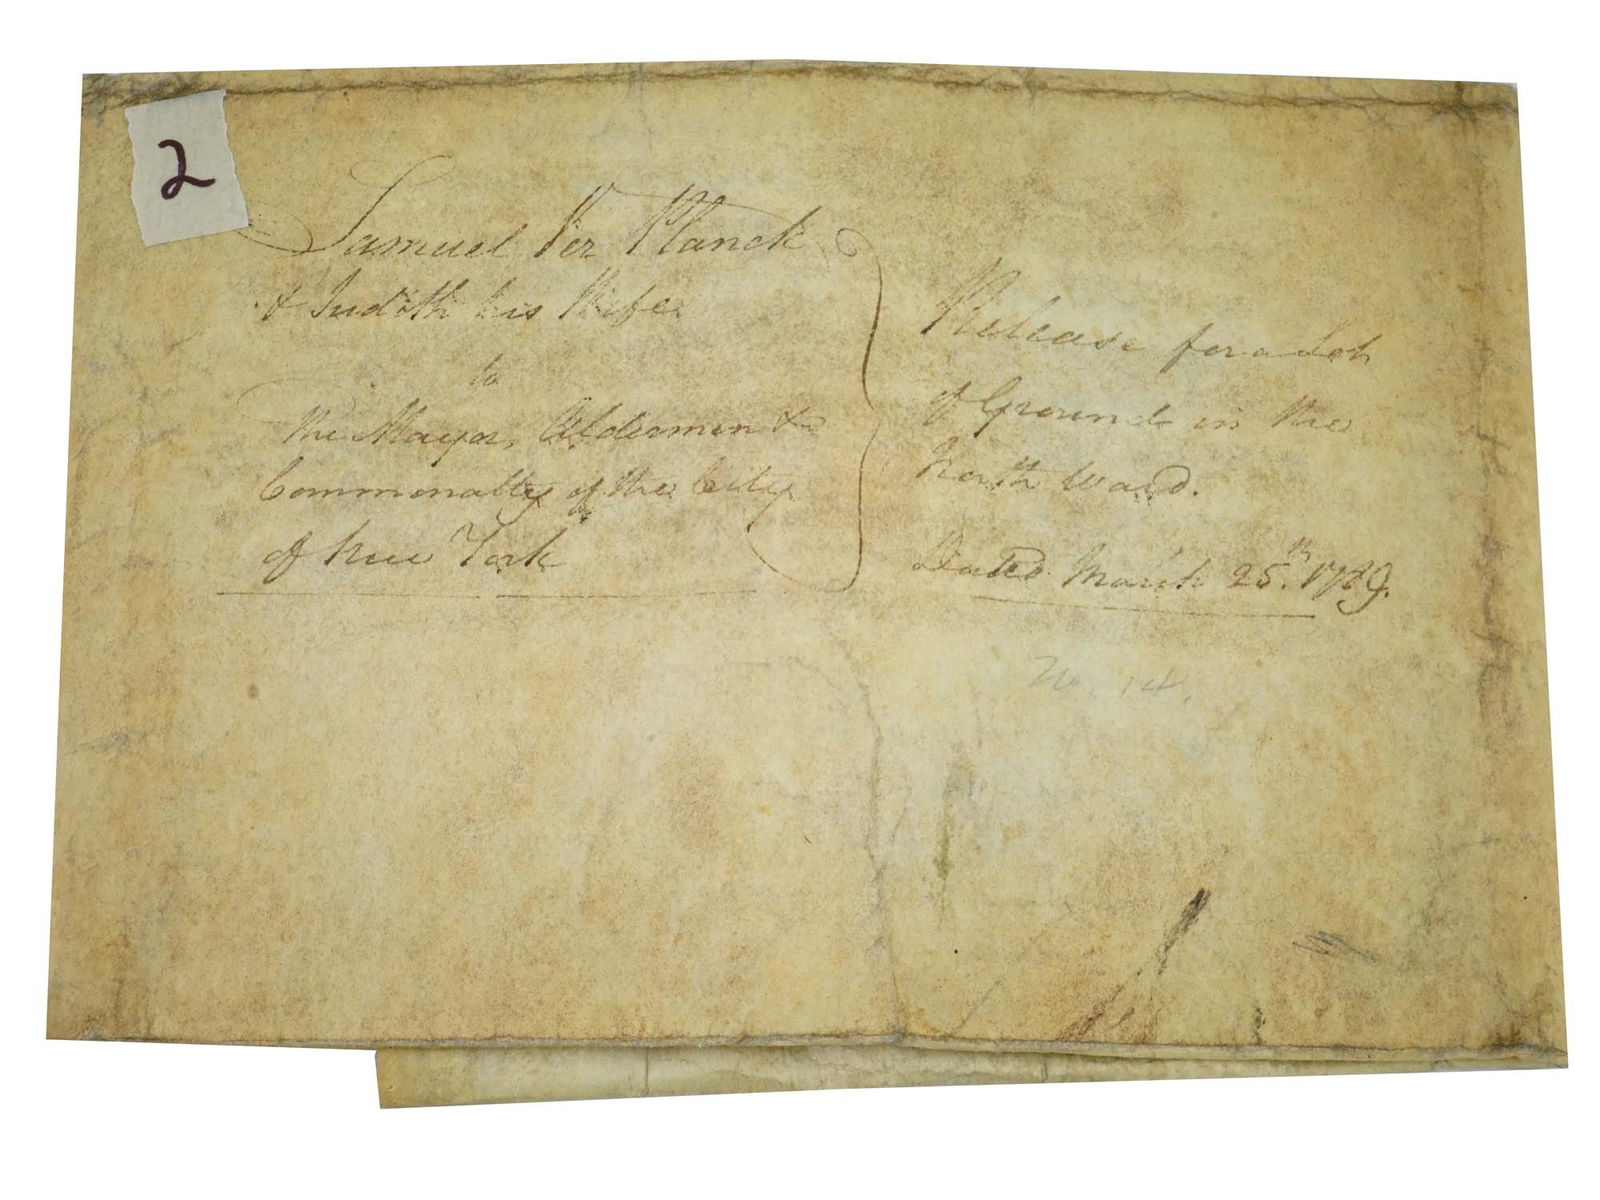 2
Samuel Ver Planck
& Judith his Wife
to
The Mayor, Aldermen &
Commonalty of the City
of New York
Release for a Lot
of Ground in the
North Ward.
Dated March 25th. 1789.
No. 14.